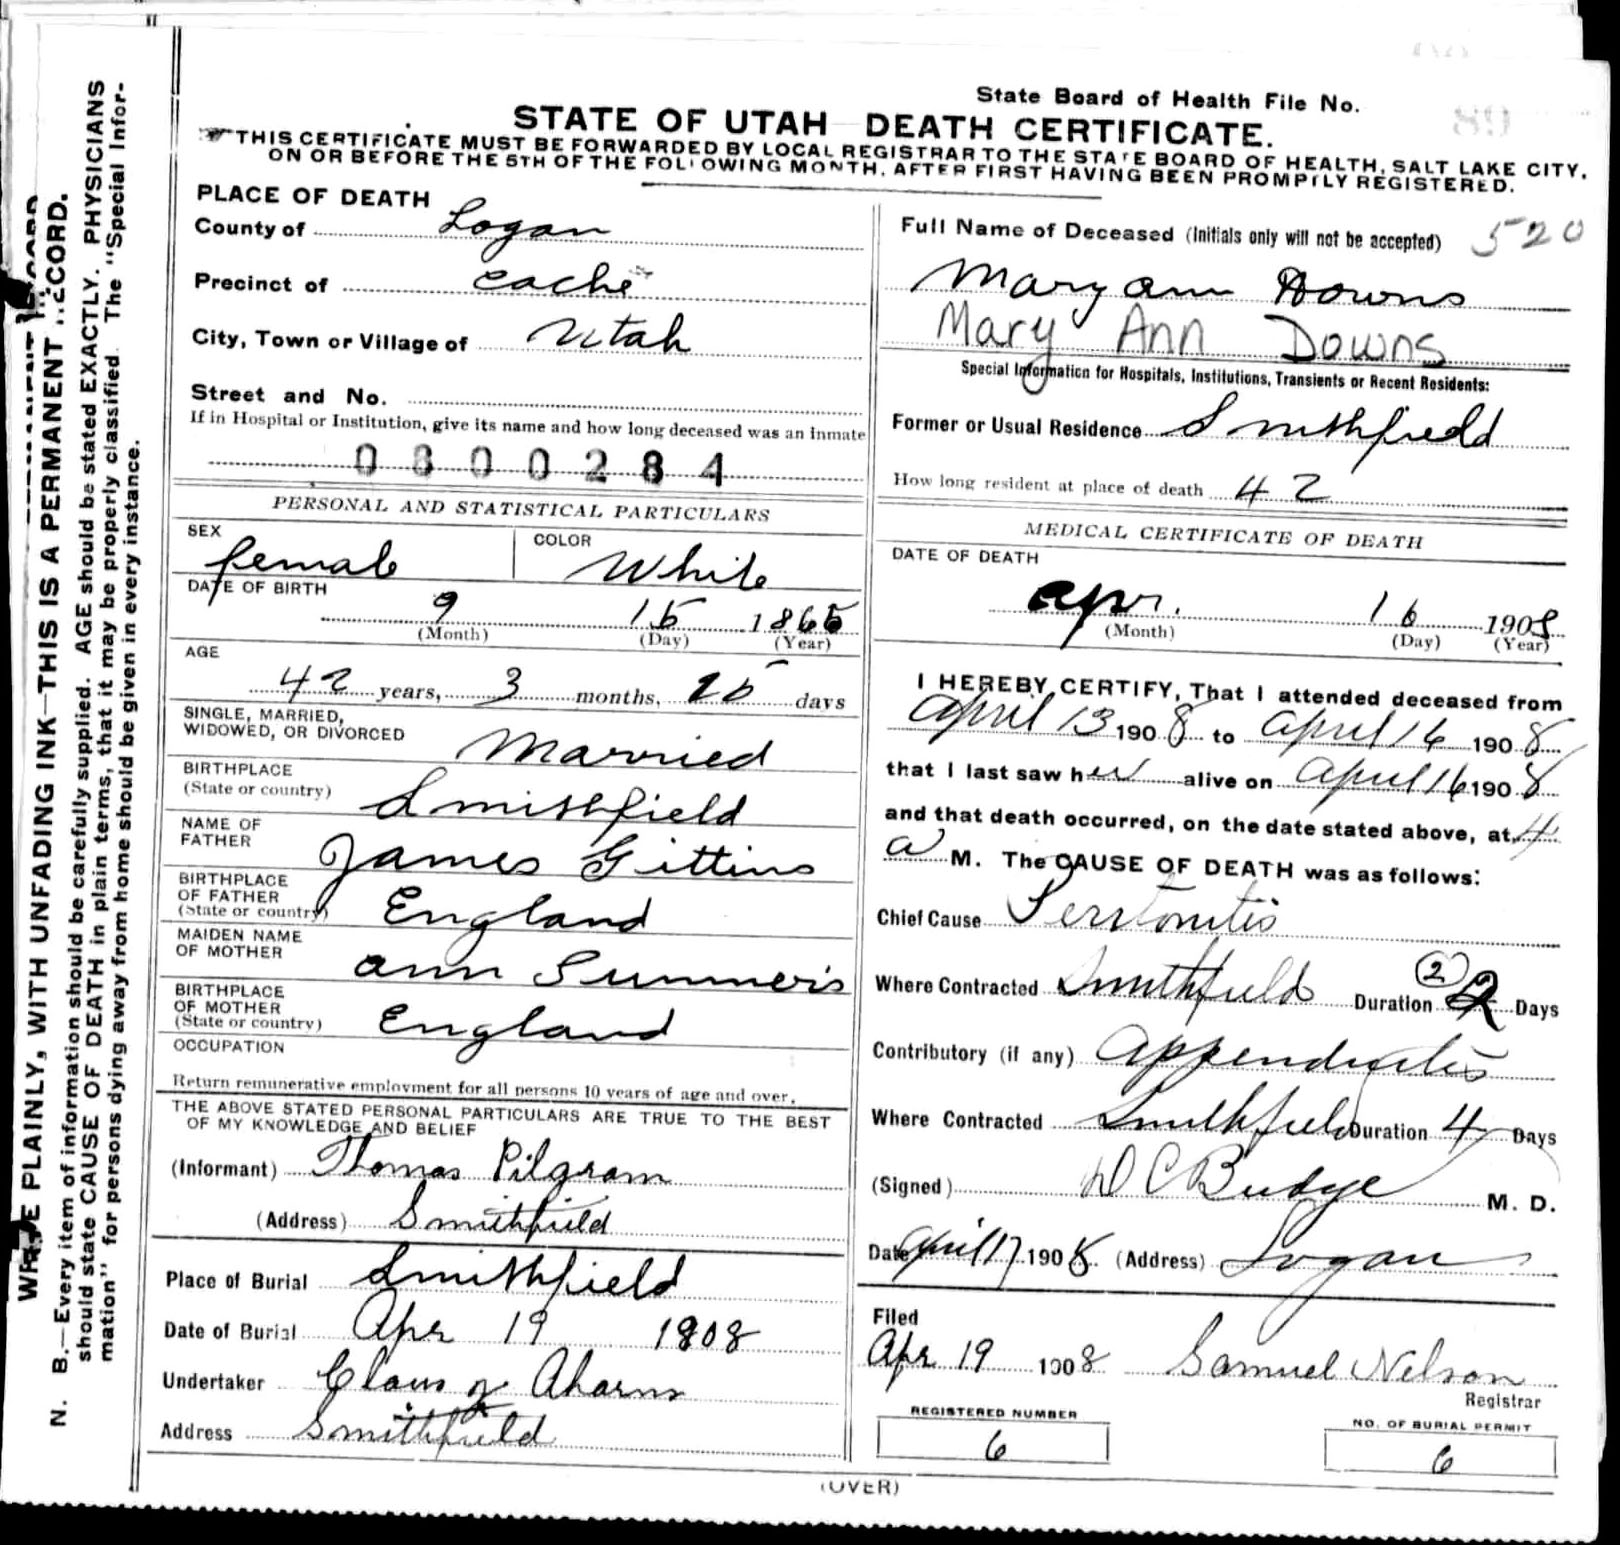 WRITE PLAINLY, WITH UNFADING INK—THIS IS A PERMANENT RECORD.
N. B.—Every item of information should be carefully supplied. AGE should be stated EXACTLY. PHYSICIANS
should state CAUSE OF DEATH in plain terms, that it may be properly classified. The "Special Infor-
mation" for persons dying away from home should be given in every instance.
State Board of Health File No.
89
STATE OF UTAH—DEATH CERTIFICATE.
THIS CERTIFICATE MUST BE FORWARDED BY LOCAL REGISTRAR TO THE STATE BOARD OF HEALTH, SALT LAKE CITY,
ON OR BEFORE THE 5TH OF THE FOLLOWING MONTH, AFTER FIRST HAVING BEEN PROMPTLY REGISTERED.
PLACE OF DEATH
County of Logan
Precinct of Cache
City, Town or Village of Utah
Street and No.
If in Hospital or Institution, give its name and how long deceased was an inmate
0800284
PERSONAL AND STATISTICAL PARTICULARS
SEX female COLOR White
DATE OF BIRTH
9 15 1865
(Month) (Day) (Year)
AGE
42 years, 3 months, 25 days
SINGLE, MARRIED,
WIDOWED, OR DIVORCED Married
BIRTHPLACE
(State or country) Smithfield
NAME OF
FATHER James Gittins
BIRTHPLACE
OF FATHER
(State or country) England
MAIDEN NAME
OF MOTHER Ann Summers
BIRTHPLACE
OF MOTHER
(State or country) England
OCCUPATION
Return remunerative employment for all persons 10 years of age and over.
THE ABOVE STATED PERSONAL PARTICULARS ARE TRUE TO THE BEST
OF MY KNOWLEDGE AND BELIEF
(Informant) Thomas Pilgram
(Address) Smithfield
Place of Burial Smithfield
Date of Burial Apr 19 1908
Undertaker Claus Aharns
Address Smithfield
Full Name of Deceased (Initials only will not be accepted) 520
Mary ann Downs
Mary Ann Downs
Special Information for Hospitals, Institutions, Transients or Recent Residents:
Former or Usual Residence Smithfield
How long resident at place of death 42
MEDICAL CERTIFICATE OF DEATH
DATE OF DEATH
apr. 16 1908
(Month) (Day) (Year)
I HEREBY CERTIFY, That I attended deceased from
April 13 1908 to April 16 1908
that I last saw her alive on April 16 1908
and that death occurred, on the date stated above, at 4
a M. The CAUSE OF DEATH was as follows:
Chief Cause Peritonitis
Where Contracted Smithfield Duration (2) 2 Days
Contributory (if any) Appendicitis
Where Contracted Smithfield Duration 4 Days
(Signed) D C Budge M. D.
Date April 17 1908 (Address) Logan
Filed
Apr 19 1908 Samuel Nelson
Registrar
REGISTERED NUMBER
6
NO. OF BURIAL PERMIT
6
(OVER)